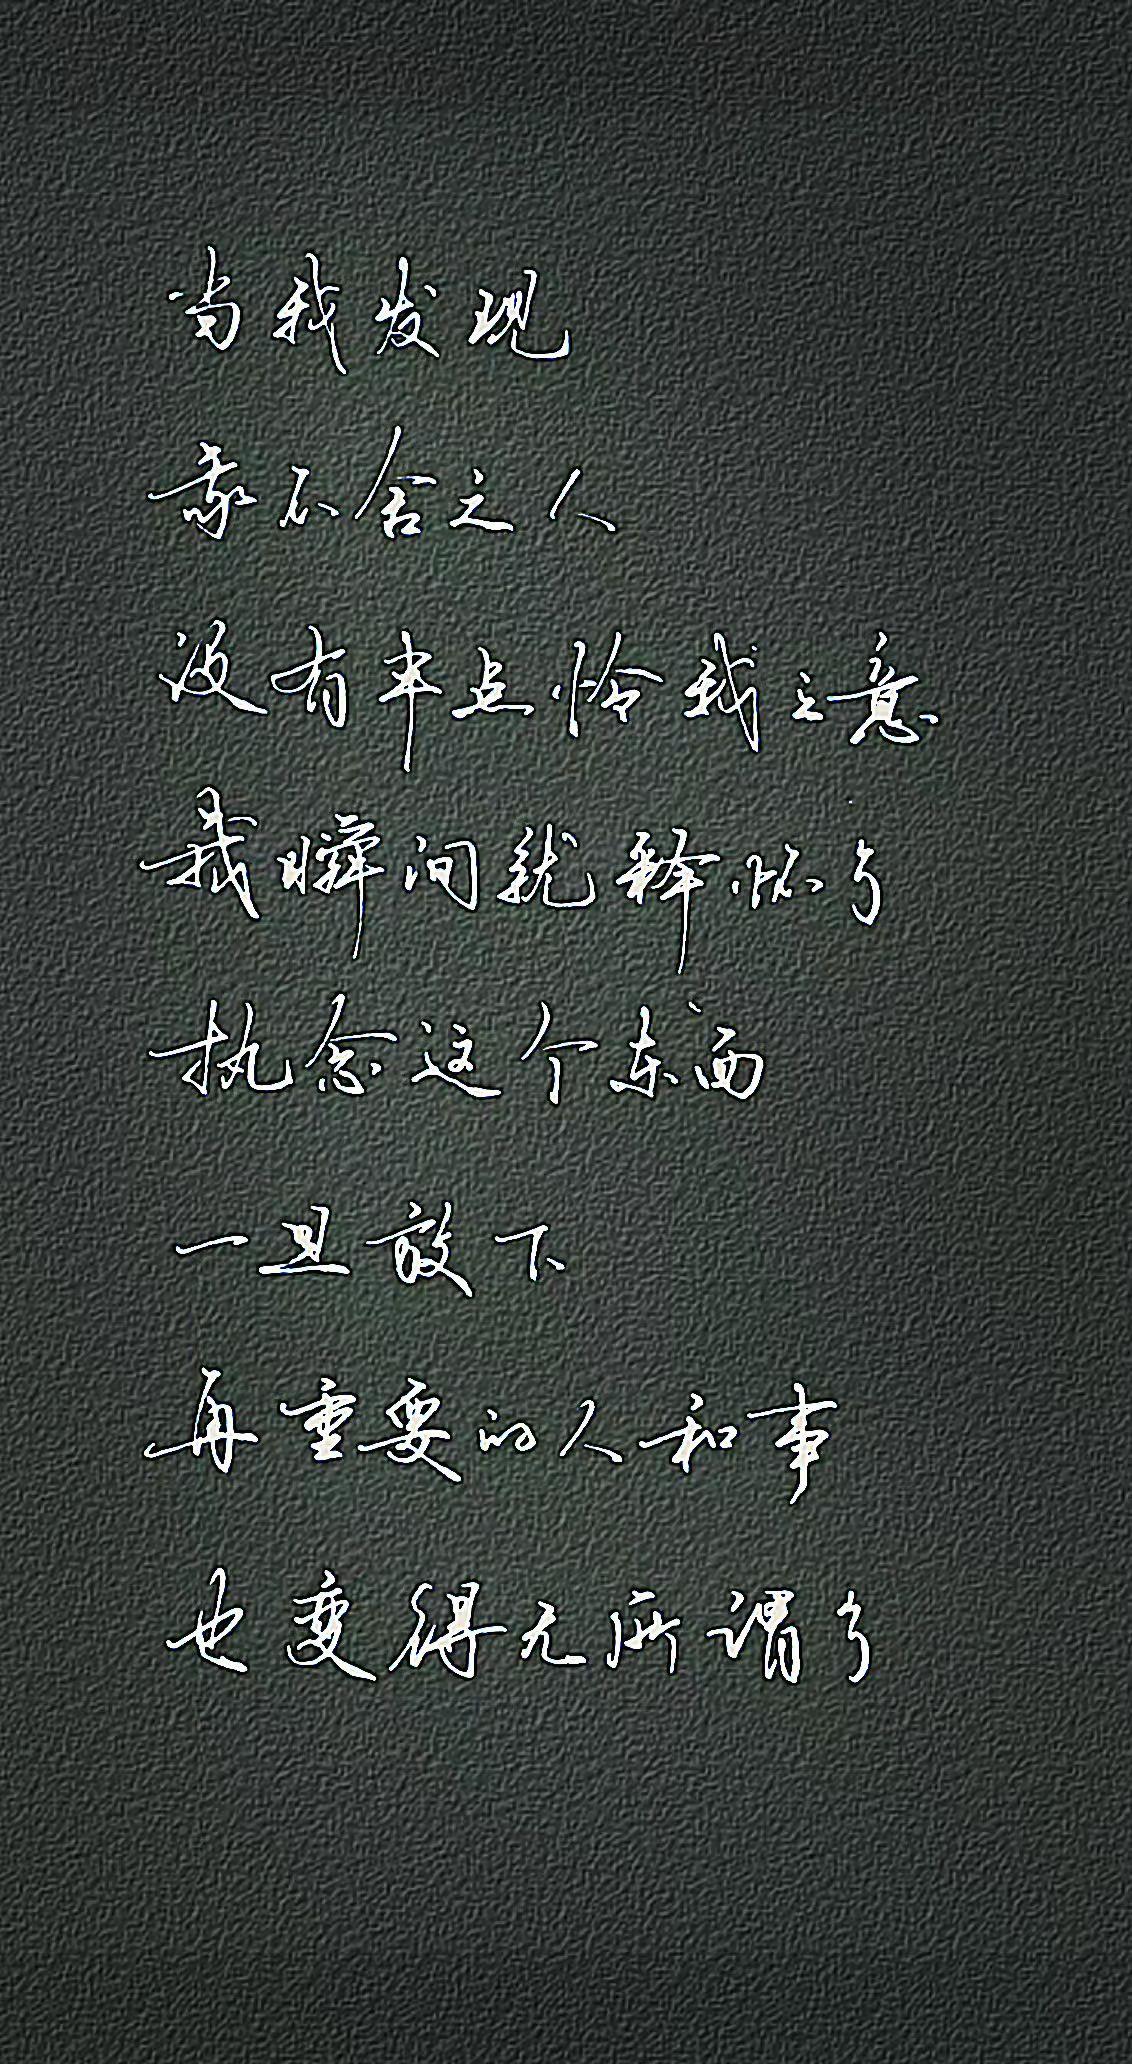 当我发现
我不舍之人
没有半点怜我之意
我瞬间就释怀了
执念这个东西
一旦放下
再重要的人和事
也变得无所谓了